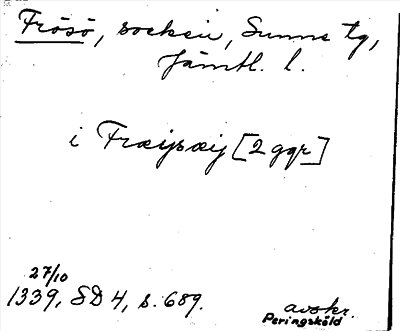 Frösö, socken, Sunne tg,
Jämtl. l.
i Fræijsæij [2 ggr]
27/10
1339, SD 4, s. 689.
avskr.
Peringsköld